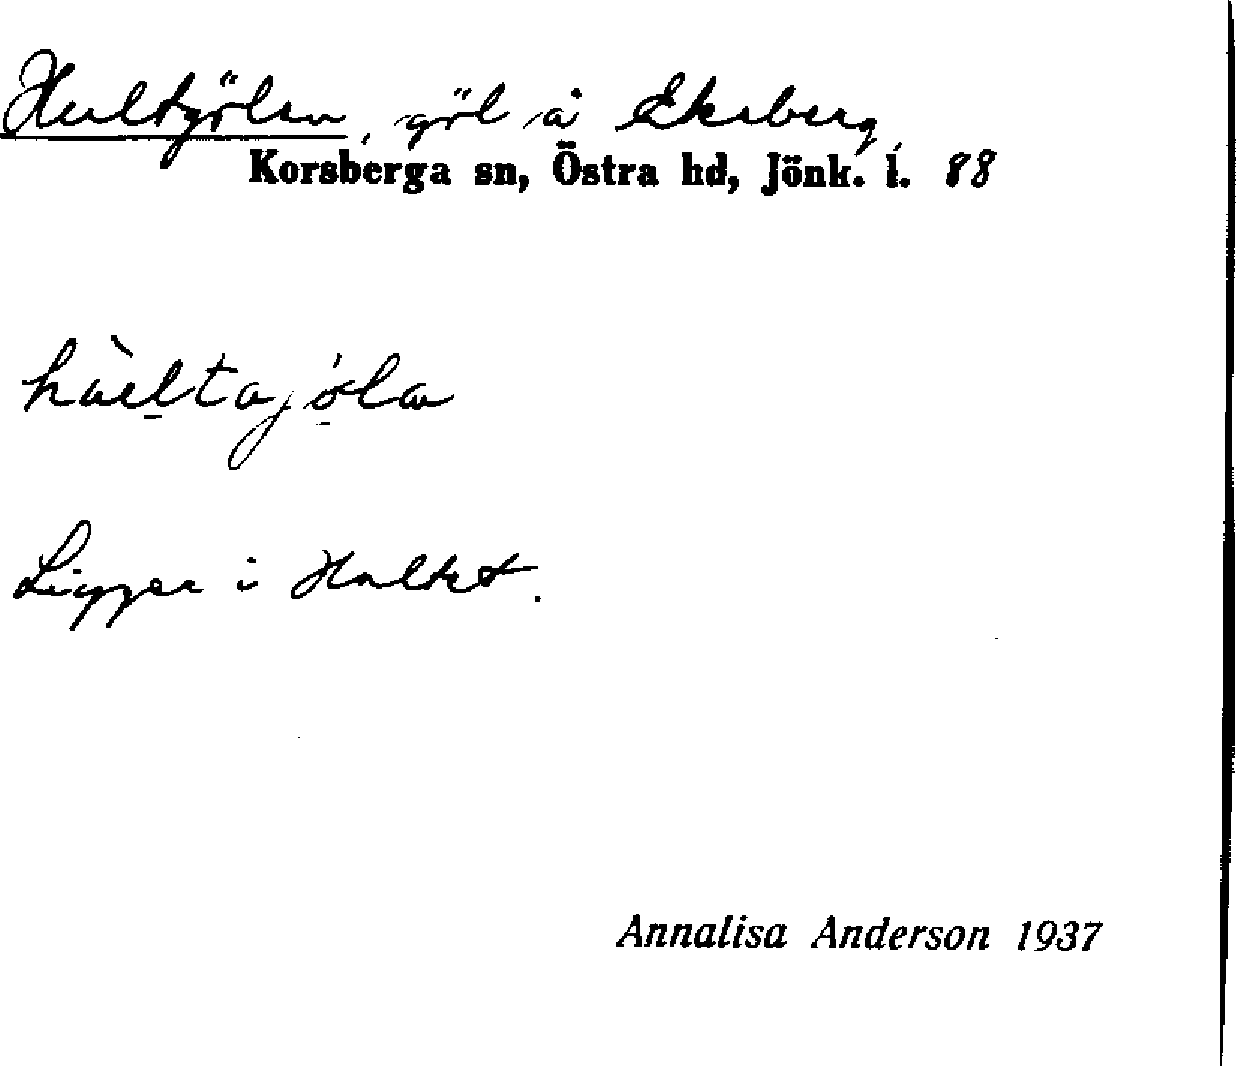 Hultgölen, göl å Ekeberg,
Korsberga sn, Östra hd, Jönk. l. 88
hùltajöla
Ligger i Hultet.
Annalisa Anderson 1937